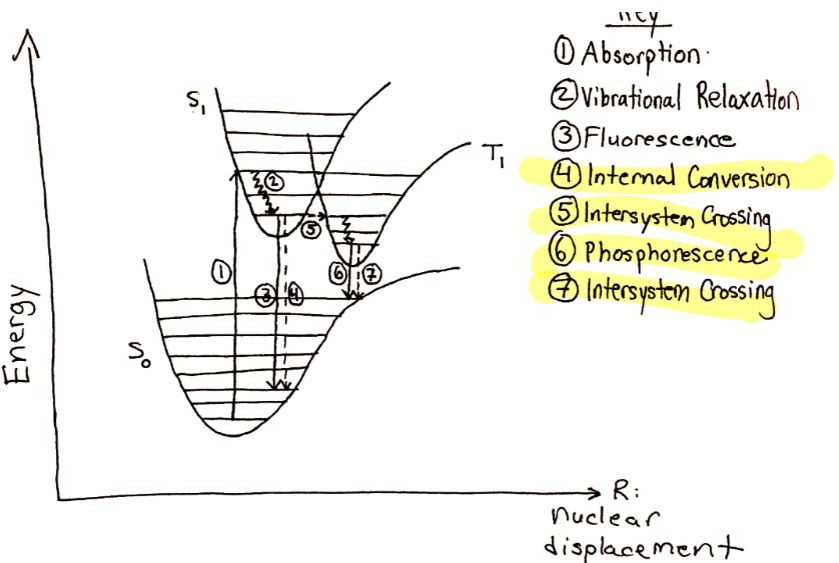 Key
① Absorption
② Vibrational Relaxation
③ Fluorescence
④ Internal Conversion
⑤ Intersystem Crossing
⑥ Phosphorescence
⑦ Intersystem Crossing
S₁
T₁
②
⑤
①
③
④
⑥
⑦
S₀
Energy
R:
nuclear
displacement